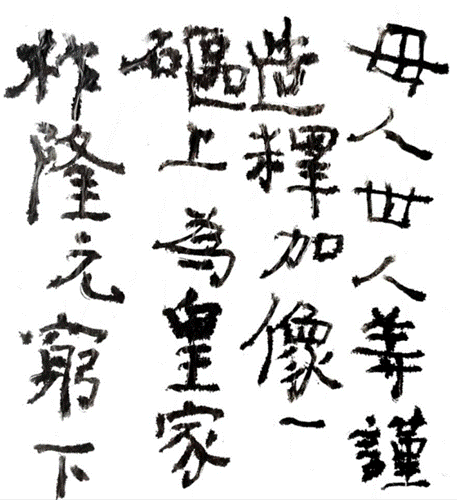 母人丗人等謹
造釋加像一
上為皇家
柞隆元窮下